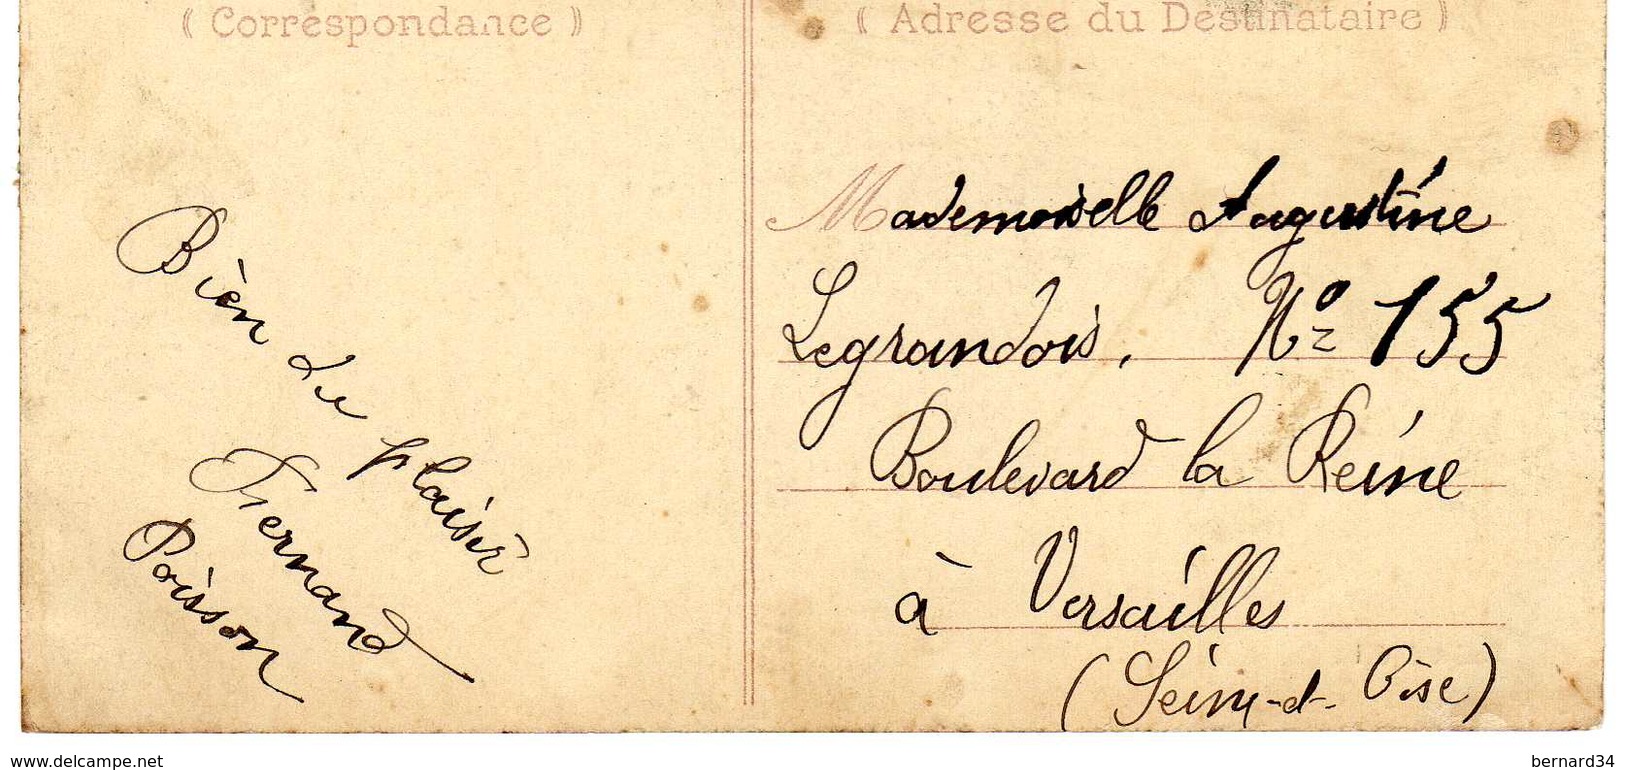 ( Correspondance )
Bien du plaisir
Fernand
Poisson
( Adresse du Destinataire )
Mademoiselle Augustine
Legrandois, Nº 155
Boulevard la Reine
à Versailles
(Seine-et-Oise)
www.delcampe.net
bernard34